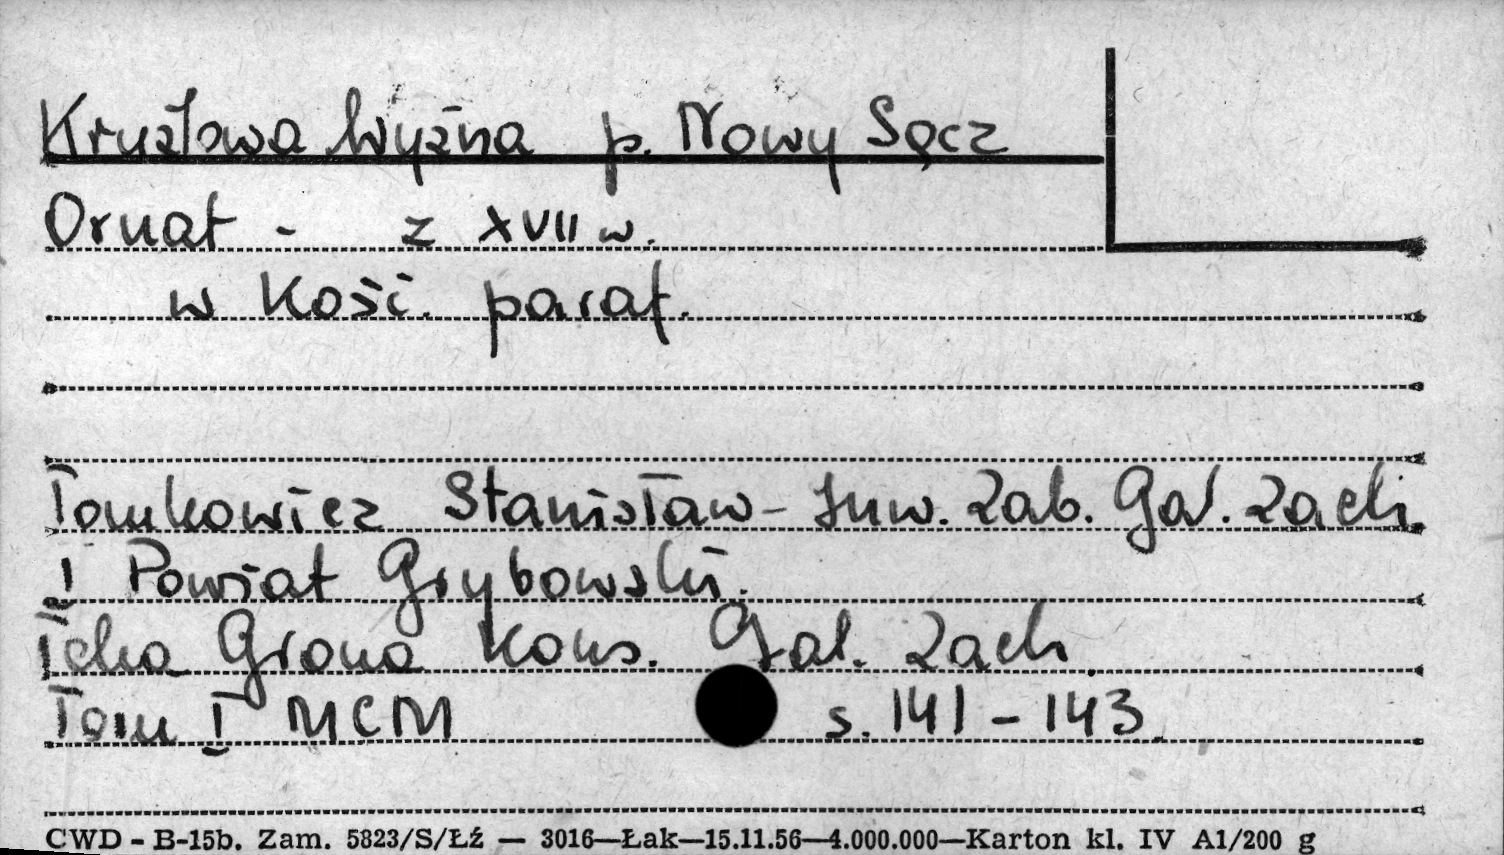 Krużlowa Wyżna p. Nowy Sącz
Ornat - z XVII w.
w Kośc. paraf.
Tomkowicz Stanisław - Inw. Zab. Gal. Zach.
I Powiat Grybowski.
Teka Grona Kons. Gal. Zach.
Tom I MCM s. 141 - 143.
CWD - B-15b. Zam. 5823/S/Łź — 3016—Łak—15.11.56—4.000.000—Karton kl. IV A1/200 g